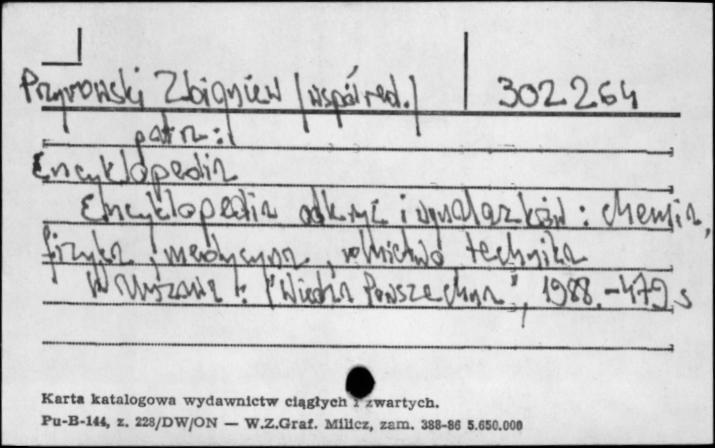 Przyrowski Zbigniew (współred.) 302264
patrz:
Encyklopedia
Encyklopedia odkryć i wynalazków : chemia,
fizyka, medycyna, rolnictwo technika
Warszawa : "Wiedza Powszechna", 1988. - 479 s
Karta katalogowa wydawnictw ciągłych i zwartych.
Pu-B-144, z. 228/DW/ON — W.Z.Graf. Milicz, zam. 388-86 5.650.000